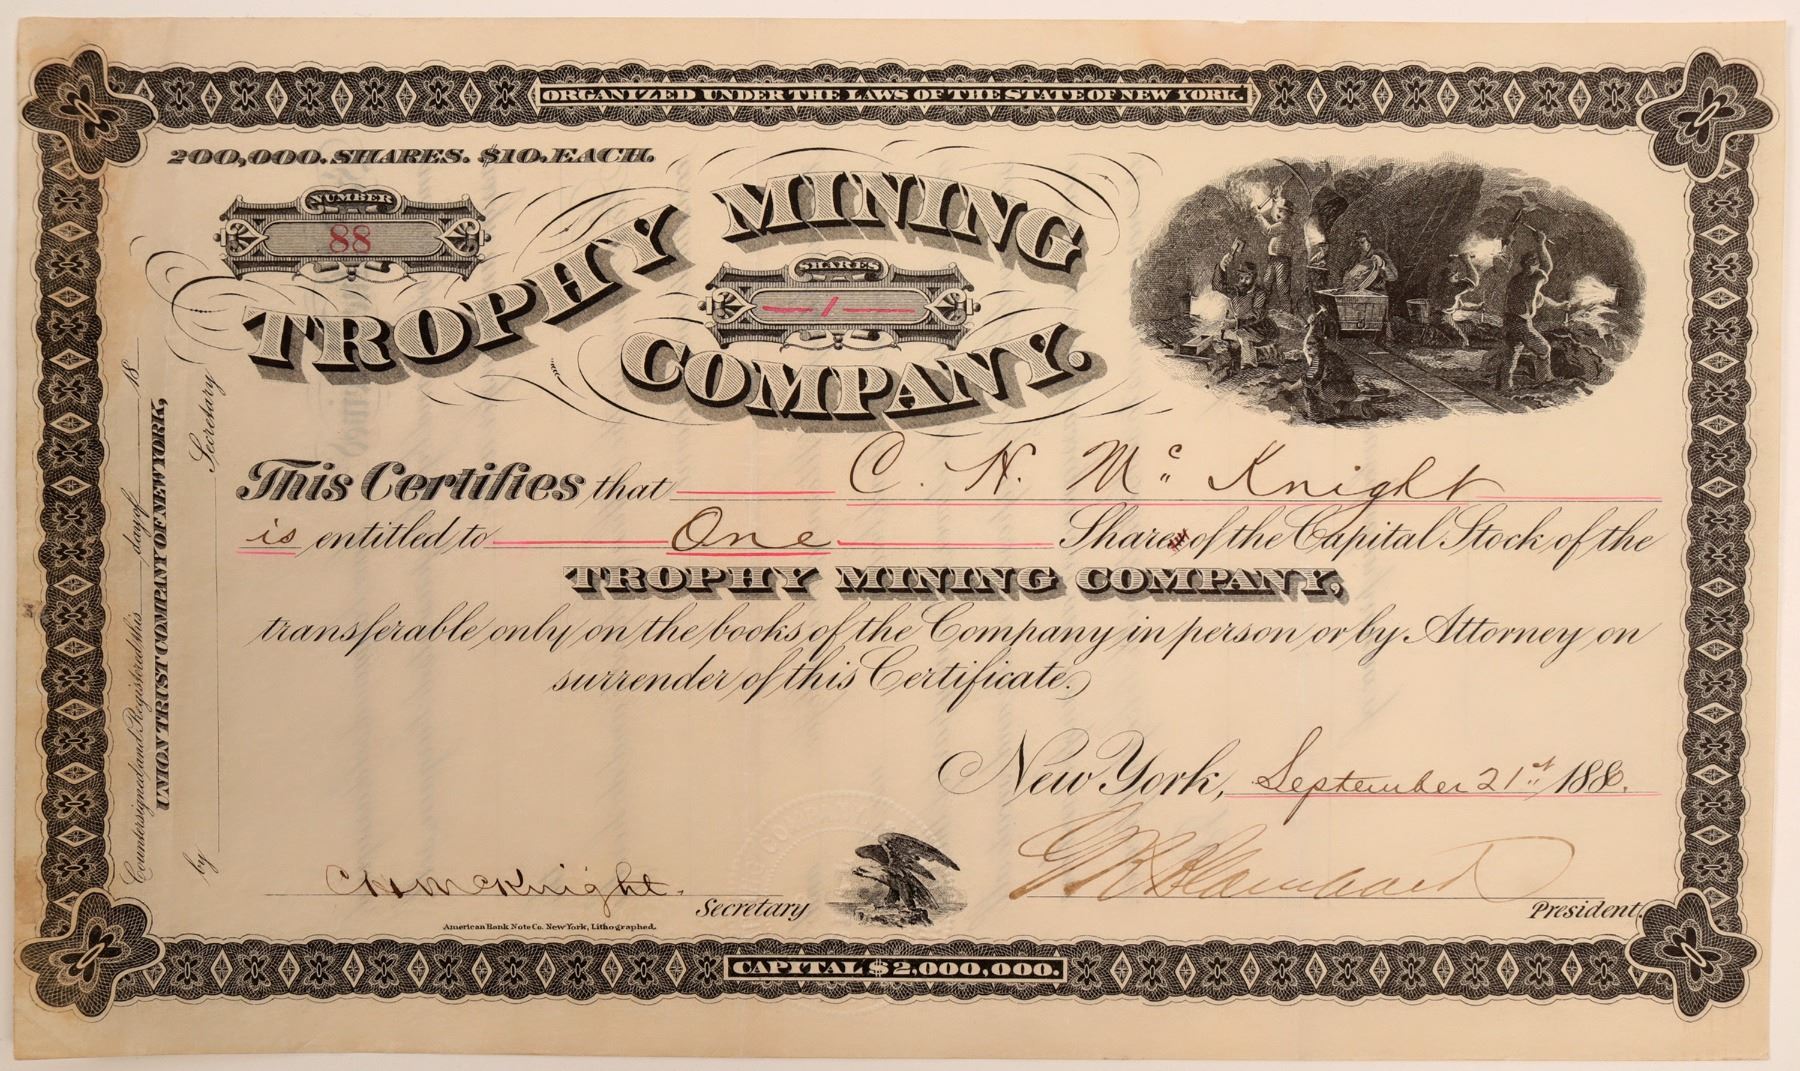 ORGANIZED UNDER THE LAWS OF THE STATE OF NEW YORK.
200,000. SHARES. $10. EACH.
NUMBER
88
TROPHY MINING
SHARES
1
COMPANY.
This Certifies that C. H. Mc Knight
is entitled to One Shares of the Capital Stock of the
TROPHY MINING COMPANY,
transferable only on the books of the Company in person or by Attorney on
surrender of this Certificate.
New York, September 21st 188
C H McKnight. Secretary
President.
American Bank Note Co. New York, Lithographed.
CAPITAL $2,000,000.
Countersigned and Registered this day of 18
UNION TRUST COMPANY OF NEW YORK,
by Secretary